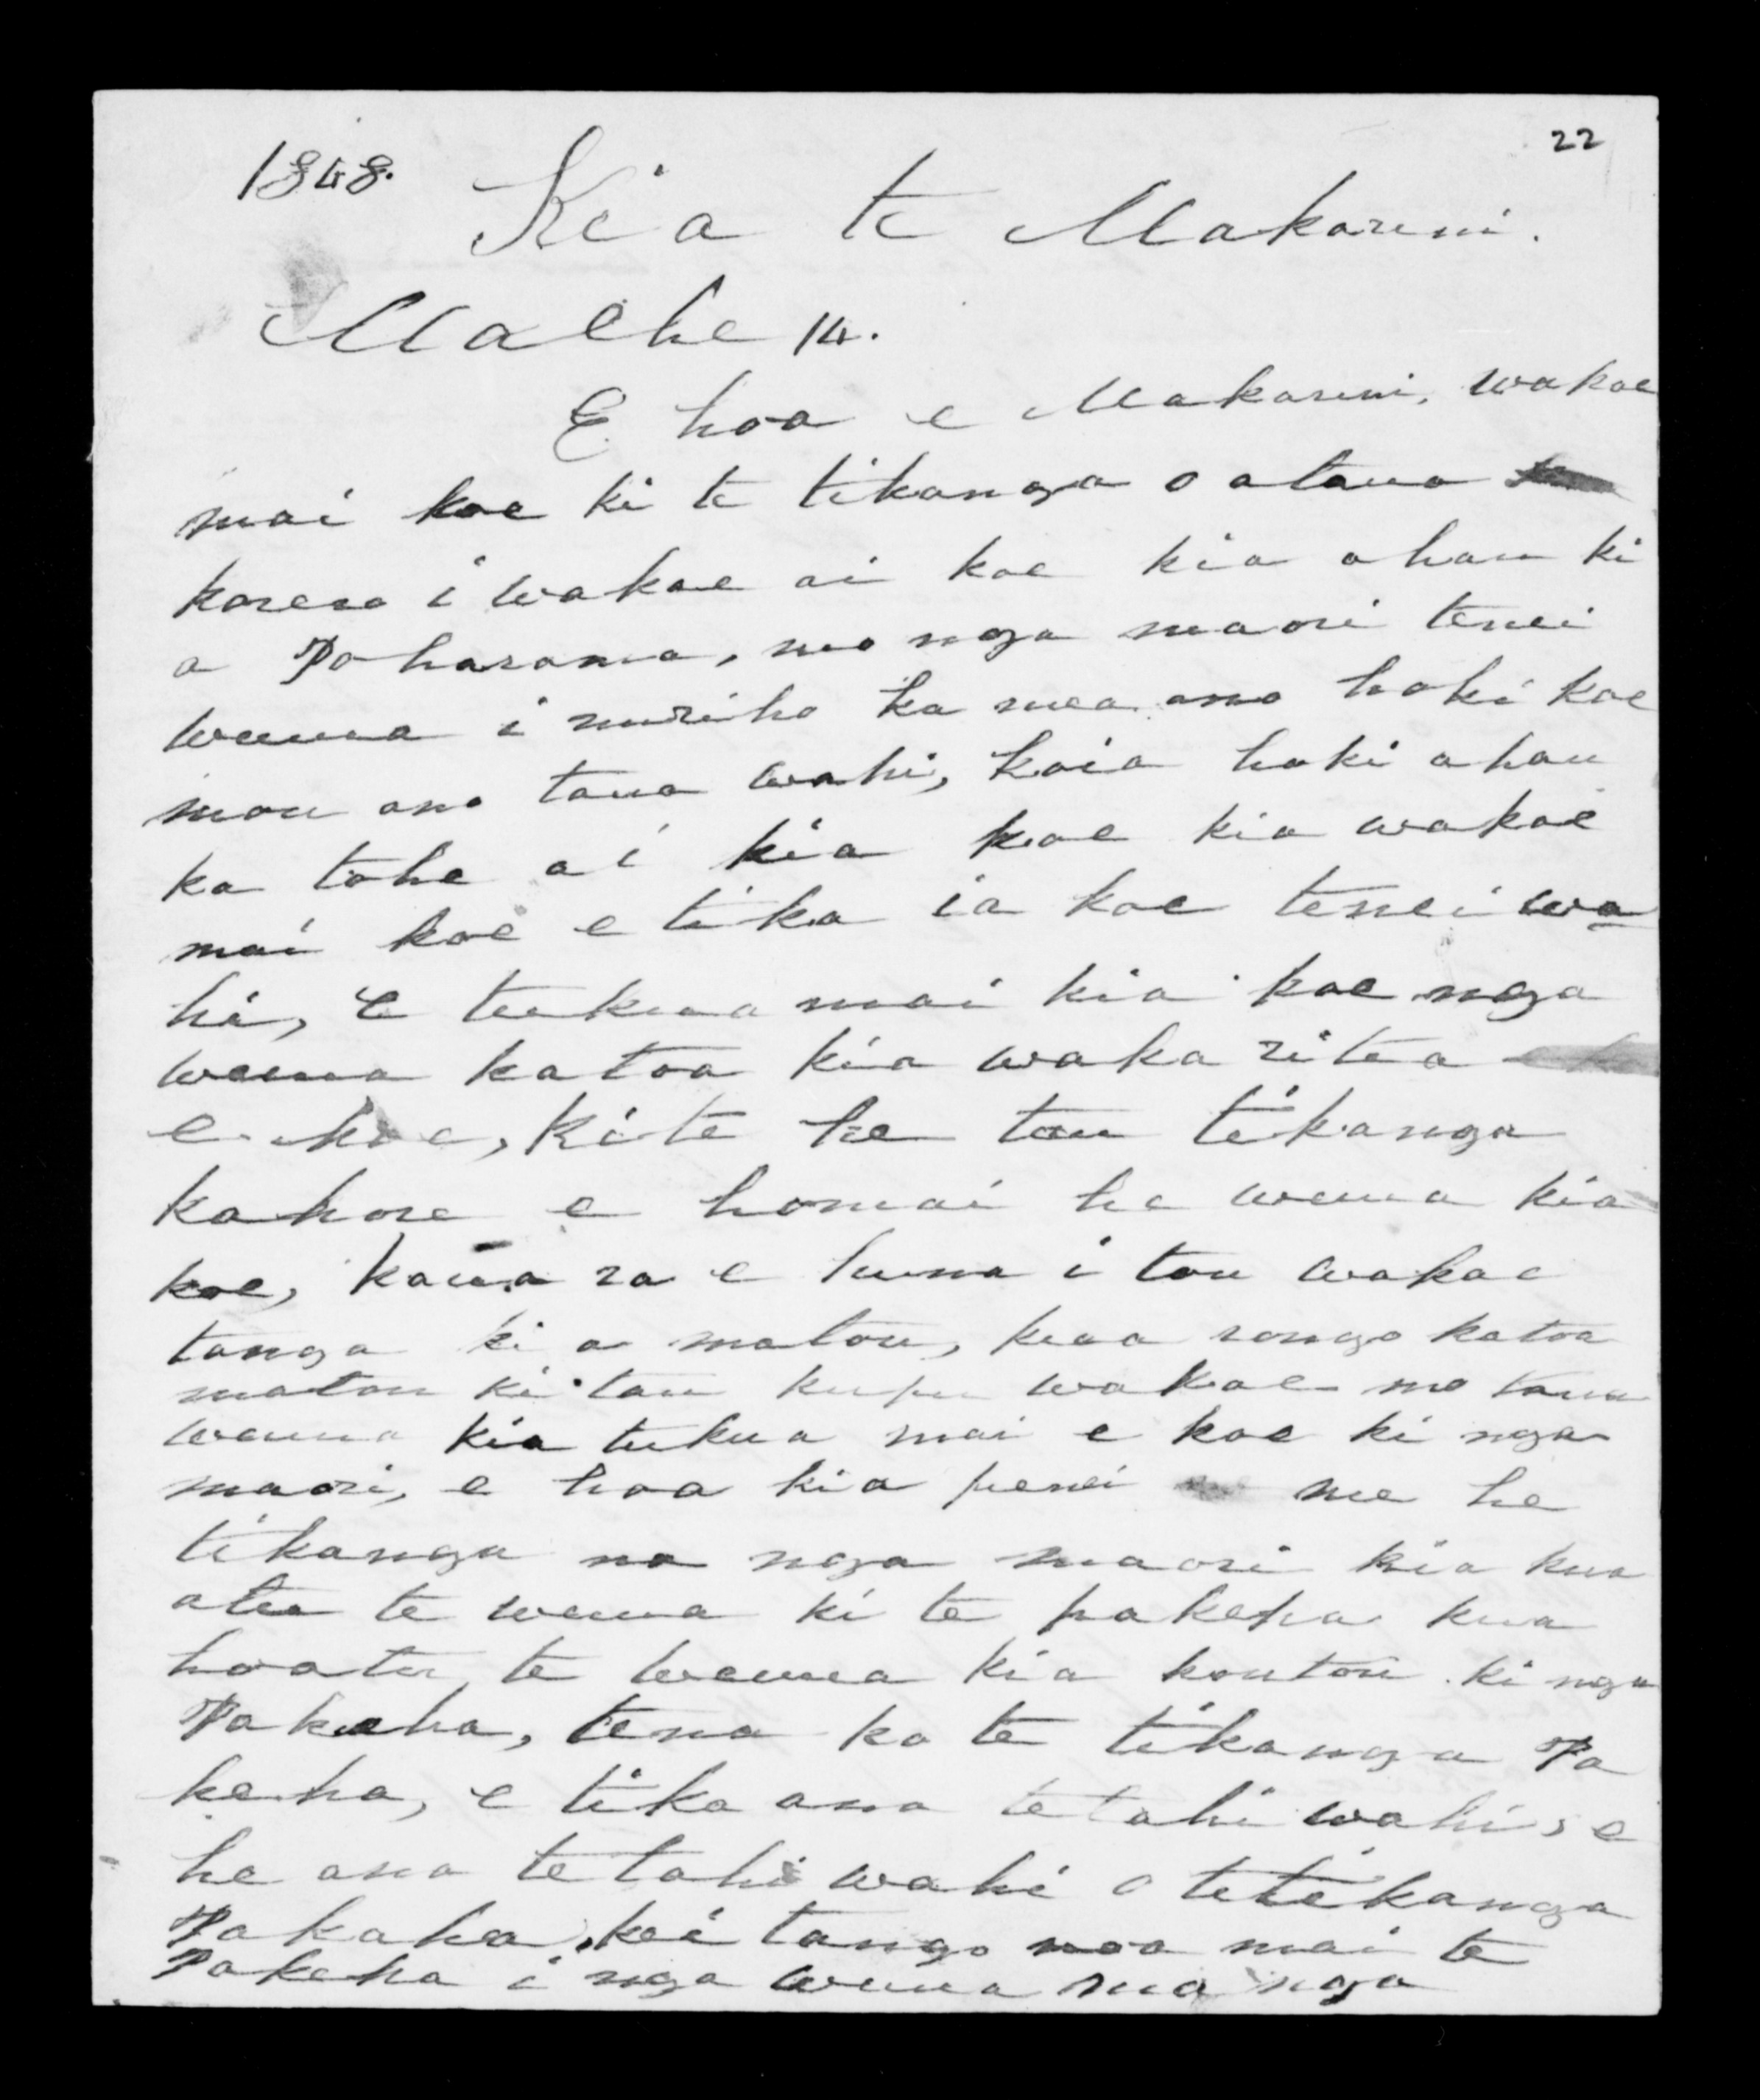 22
1848.
Kia te Makarini.
Maehe 14.
E hoa e Makarini, wakae
mai koe ki te tikanga o ataua
korero i wakae ai koe kia ahau ki
a Poharama, mo nga maori tenei
wenua i muriho ka mea ano hoki koe
mou ano taua wahi, koia hoki ahau
ka tohe ai kia koe kia wakae
mai koe e tika ia koe tenei wa
hi, e tukua mai kia koe nga
wenua katoa kia waka ritea
e koe, ki te he tau tikanga
kahore e homai he wenua kia
koe, kaua ra e huna i tou wakae
tanga ki a matou, kua rongo katoa
matou ki tau kupu wakae mo taua
wenua kia tukua mai e koe ki nga
maori, e hoa kia penei me he
tikanga no nga maori kia kua
atu te wenua ki te pakeha kua
hoatu te wenua kia koutou ki nga
Pakeha, tena ko te tikanga Pa
keha, e tika ana tetahi wahi, e
he ana tetahi wahi o te tikanga
Pakaha, kei tango noa mai te
Pakeha i nga wenua ma nga